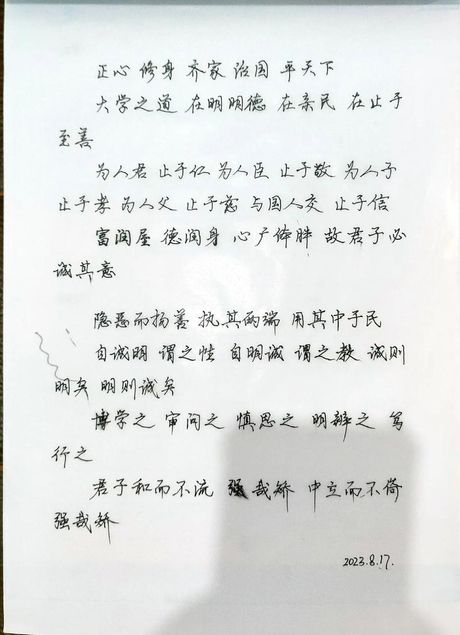 正心 修身 齐家 治国 平天下
大学之道 在明明德 在亲民 在止于
至善
为人君 止于仁 为人臣 止于敬 为人子
止于孝 为人父 止于慈 与国人交 止于信
富润屋 德润身 心广体胖 故君子必
诚其意
隐恶而扬善 执其两端 用其中于民
自诚明 谓之性 自明诚 谓之教 诚则
明矣 明则诚矣
博学之 审问之 慎思之 明辨之 笃
行之
君子和而不流 强哉矫 中立而不倚
强哉矫
2023.8.17.